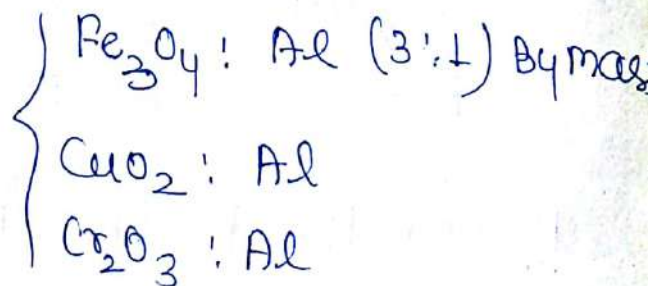 Fe₃O₄ : Al (3:1) By mas
CuO₂ : Al
Cr₂O₃ : Al